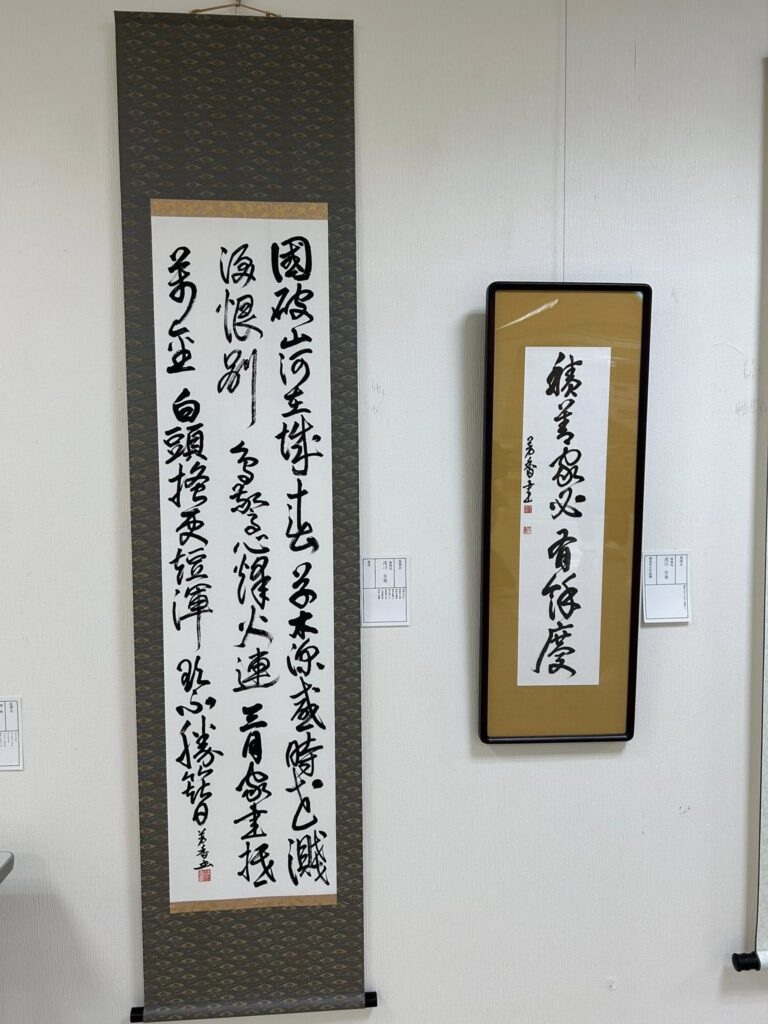 國破山河在城春草木深感時花濺
涙恨別鳥驚心烽火連三月家書抵
萬金白頭掻更短渾欲不勝簪
芳香書
積善家必有餘慶
芳香書